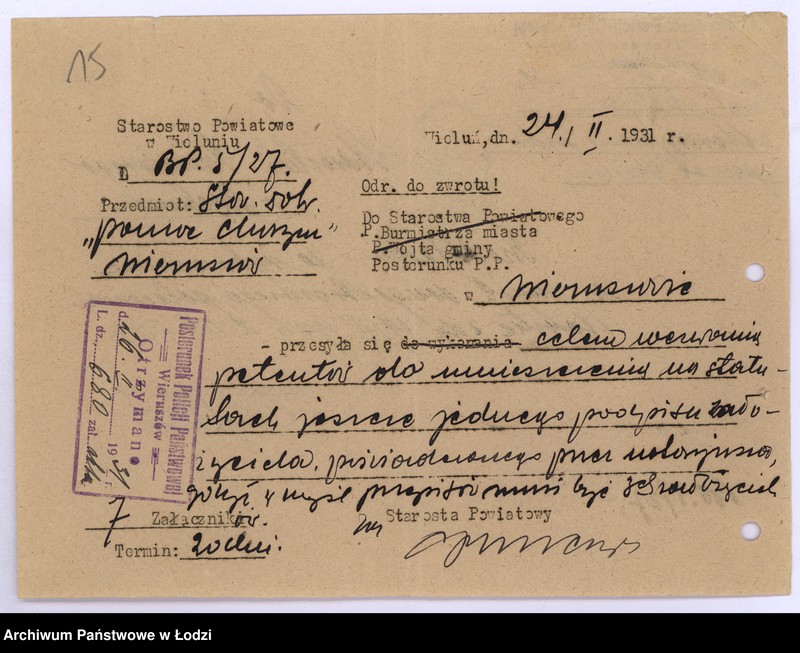 15
Starostwo Powiatowe
w Wieluniu
L BP. 5/27.
Przedmiot: Stow. dobr.
"pomoc
Wieruszów
Wieluń, dn. 24./II. 1931 r.
Odr. do zwrotu!
Do Starostwa Powiatowego
P.Burmistrza miasta
P.Wójta gminy
Posterunku P.P.
w Wieruszowie
- przesyła się do wykonania celem wezwania
petentów do umieszczenia na statu-
tach jeszcze jednego podpisu zało-
życiela, poświadczonego przez notarjusza,
gdyż w myśl przepisów musi być założycieli
7 Załączników.
Termin: 20 dni.
Starosta Powiatowy
Posterunek Policji Państwowej
Wieruszów
Otrzymano
d. 26. II 1931 r.
L. dz. 680 zał.
Archiwum Państwowe w Łodzi